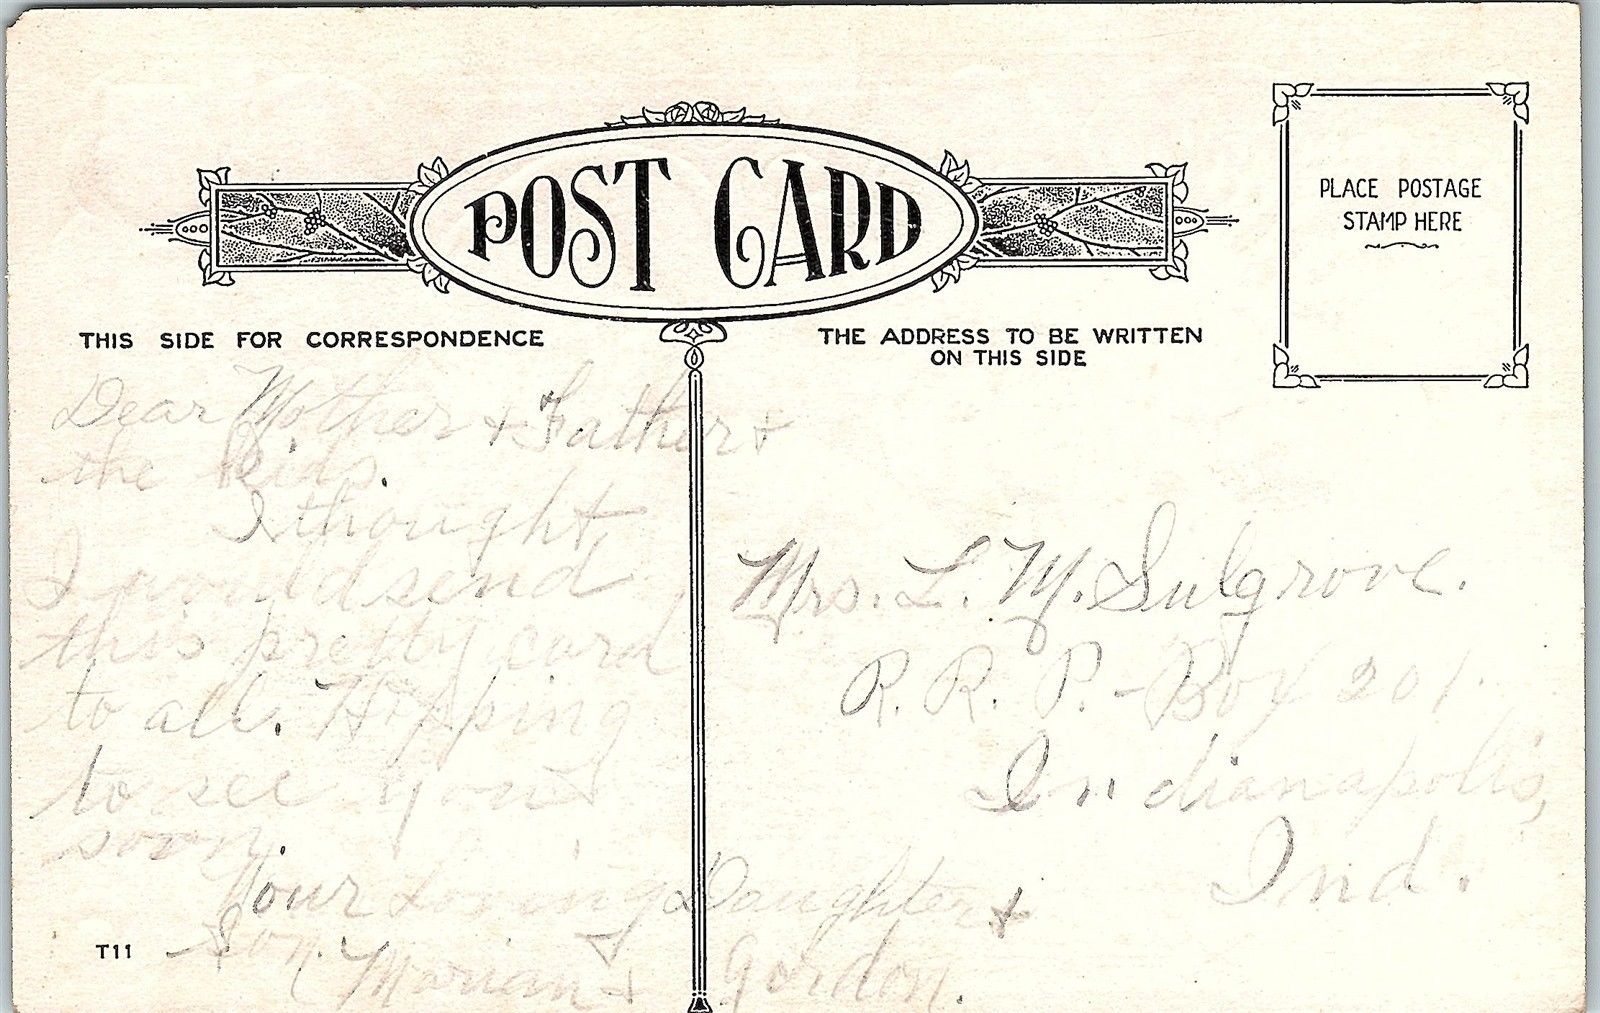 POST CARD
PLACE POSTAGE
STAMP HERE
THIS SIDE FOR CORRESPONDENCE
THE ADDRESS TO BE WRITTEN
ON THIS SIDE
Dear Mother & Father &
the kids.
I thought
I would send
this pretty card
to all. Hopping
to see you
soon.
Your Loving Daughter &
Son. Marian & Gordon.
T11
Mrs. L. M. Sulgrove.
R. R. P. - Box 201.
Indianapolis,
Ind.